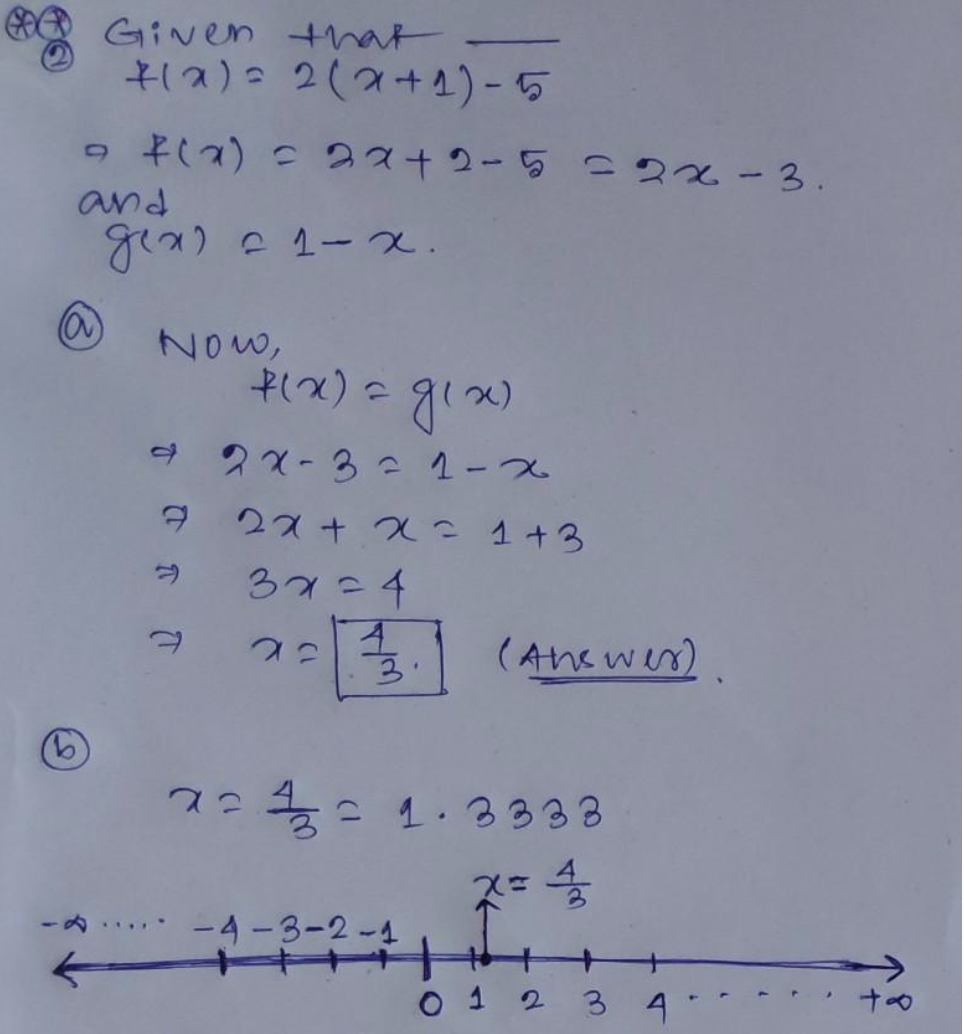 ** ② Given that —
f(x) = 2(x+1)-5
⇒ f(x) = 2x+2-5 = 2x-3.
and
g(x) = 1-x.
ⓐ Now,
f(x) = g(x)
⇒ 2x-3 = 1-x
⇒ 2x+x = 1+3
⇒ 3x = 4
⇒ x = 4/3. (Answer).
ⓑ
x = 4/3 = 1.3333
x = 4/3
-∞ ..... -4 -3 -2 -1
0 1 2 3 4 ...... +∞